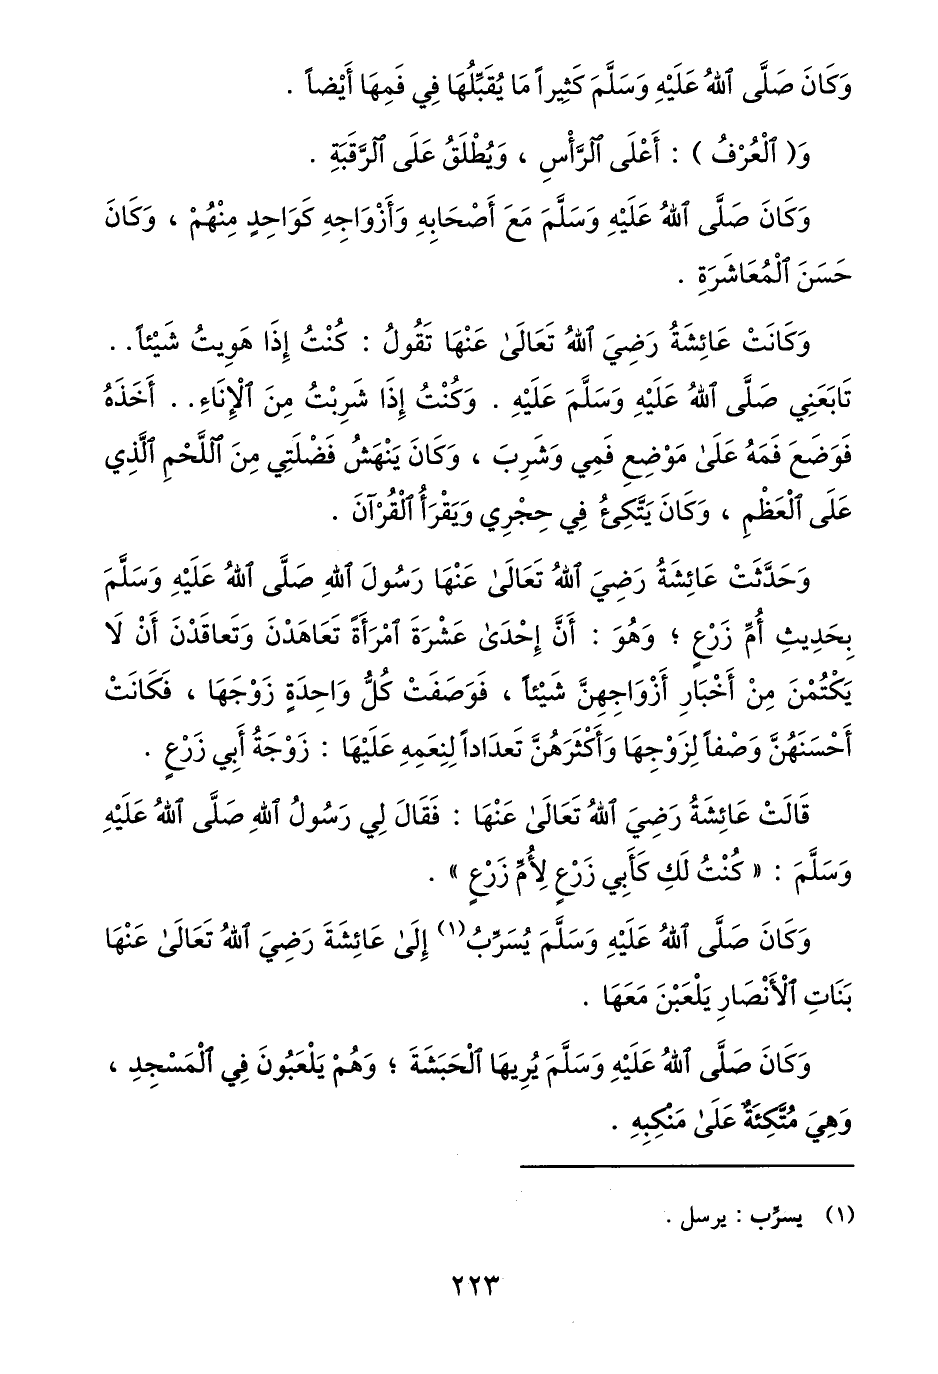 وَكَانَ صَلَّى ٱللهُ عَلَيْهِ وَسَلَّمَ كَثِيراً مَا يُقَبِّلُهَا فِي فَمِهَا أَيْضاً .
وَ( ٱلْعُرْفُ ) : أَعْلَى ٱلرَّأْسِ ، وَيُطْلَقُ عَلَى ٱلرَّقَبَةِ .
وَكَانَ صَلَّى ٱللهُ عَلَيْهِ وَسَلَّمَ مَعَ أَصْحَابِهِ وَأَزْوَاجِهِ كَوَاحِدٍ مِنْهُمْ ، وَكَانَ
حَسَنَ ٱلْمُعَاشَرَةِ .
وَكَانَتْ عَائِشَةُ رَضِيَ ٱللهُ تَعَالَىٰ عَنْهَا تَقُولُ : كُنْتُ إِذَا هَوِيتُ شَيْئاً . .
تَابَعَنِي صَلَّى ٱللهُ عَلَيْهِ وَسَلَّمَ عَلَيْهِ . وَكُنْتُ إِذَا شَرِبْتُ مِنَ ٱلْإِنَاءِ . . أَخَذَهُ
فَوَضَعَ فَمَهُ عَلَىٰ مَوْضِعِ فَمِي وَشَرِبَ ، وَكَانَ يَنْهَشُ فَضْلَتِي مِنَ ٱللَّحْمِ ٱلَّذِي
عَلَى ٱلْعَظْمِ ، وَكَانَ يَتَّكِئُ فِي حِجْرِي وَيَقْرَأُ ٱلْقُرْآنَ .
وَحَدَّثَتْ عَائِشَةُ رَضِيَ ٱللهُ تَعَالَىٰ عَنْهَا رَسُولَ ٱللهِ صَلَّى ٱللهُ عَلَيْهِ وَسَلَّمَ
بِحَدِيثِ أُمِّ زَرْعٍ ؛ وَهُوَ : أَنَّ إِحْدَىٰ عَشْرَةَ ٱمْرَأَةً تَعَاهَدْنَ وَتَعاقَدْنَ أَنْ لَا
يَكْتُمْنَ مِنْ أَخْبَارِ أَزْوَاجِهِنَّ شَيْئاً ، فَوَصَفَتْ كُلُّ وَاحِدَةٍ زَوْجَهَا ، فَكَانَتْ
أَحْسَنَهُنَّ وَصْفاً لِزَوْجِهَا وَأَكْثَرَهُنَّ تَعدَاداً لِنِعَمِهِ عَلَيْهَا : زَوْجَةُ أَبِي زَرْعٍ .
قَالَتْ عَائِشَةُ رَضِيَ ٱللهُ تَعَالَىٰ عَنْهَا : فَقَالَ لِي رَسُولُ ٱللهِ صَلَّى ٱللهُ عَلَيْهِ
وَسَلَّمَ : « كُنْتُ لَكِ كَأَبِي زَرْعٍ لِأُمِّ زَرْعٍ » .
وَكَانَ صَلَّى ٱللهُ عَلَيْهِ وَسَلَّمَ يُسَرِّبُ(١) إِلَىٰ عَائِشَةَ رَضِيَ ٱللهُ تَعَالَىٰ عَنْهَا
بَنَاتِ ٱلْأَنْصَارِ يَلْعَبْنَ مَعَهَا .
وَكَانَ صَلَّى ٱللهُ عَلَيْهِ وَسَلَّمَ يُرِيهَا ٱلْحَبَشَةَ ؛ وَهُمْ يَلْعَبُونَ فِي ٱلْمَسْجِدِ ،
وَهِيَ مُتَّكِئَةٌ عَلَىٰ مَنْكِبِهِ .
(١) يسرِّب : يرسل .
٢٢٣